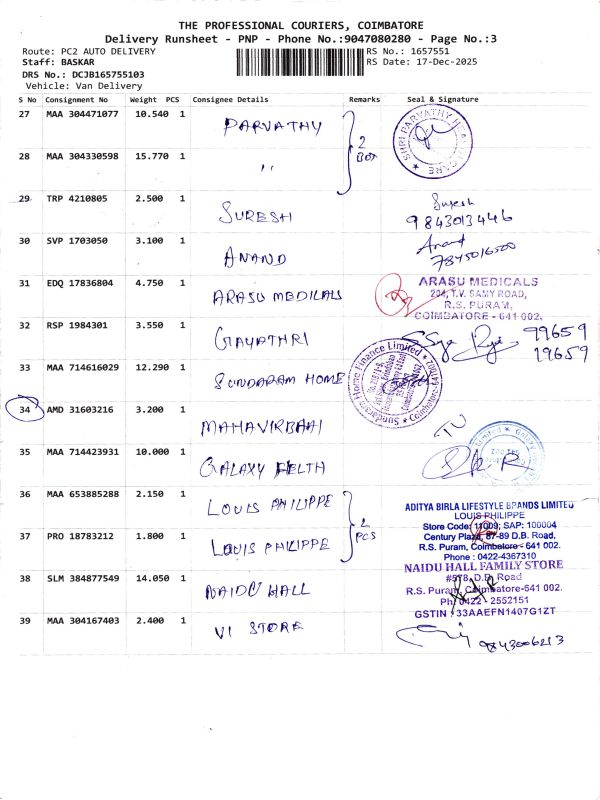 THE PROFESSIONAL COURIERS, COIMBATORE
Delivery Runsheet - PNP - Phone No.:9047080280 - Page No.:3
Route: PC2 AUTO DELIVERY
RS No.: 1657551
Staff: BASKAR
RS Date: 17-Dec-2025
DRS No.: DCJB165755103
Vehicle: Van Delivery
S No Consignment No Weight PCS Consignee Details Remarks Seal & Signature
27 MAA 304471077 10.540 1 PARVATHY
2 BOX
SHRI PARVATHY HEALTHCARE
28 MAA 304330598 15.770 1 ,,
29 TRP 4210805 2.500 1 SURESH
Suresh
9843013446
30 SVP 1703050 3.100 1 ANAND
Anand
7845016500
31 EDQ 17836804 4.750 1 ARASU MEDICALS
ARASU MEDICALS
204, T.V. SAMY ROAD,
R.S. PURAM,
COIMBATORE - 641 002.
32 RSP 1984301 3.550 1 GAYATHRI
99659
19659
33 MAA 714616029 12.290 1 SUNDARAM HOME
Sundaram Home Finance Limited
34 AMD 31603216 3.200 1 MAHAVIRBAAI
35 MAA 714423931 10.000 1 GALAXY HELTH
36 MAA 653885288 2.150 1 LOUIS PHILIPPE
2 PCS
ADITYA BIRLA LIFESTYLE BRANDS LIMITED
LOUIS PHILIPPE
Store Code: 11009; SAP: 100004
Century Plaza, 87-89 D.B. Road,
R.S. Puram, Coimbatore - 641 002.
Phone : 0422-4367310
37 PRO 18783212 1.800 1 LOUIS PHILIPPE
38 SLM 384877549 14.050 1 NAIDU HALL
NAIDU HALL FAMILY STORE
#578, D.B. Road
R.S. Puram, Coimbatore-641 002.
Ph: 0422 - 2552151
GSTIN : 33AAEFN1407G1ZT
39 MAA 304167403 2.400 1 VI STORE
9843006213